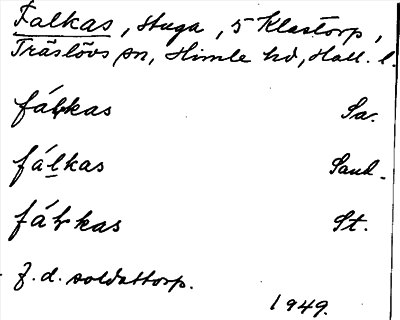 Falkas, stuga, 5 Klastorp,
Träslövs sn, Himle hd, Hall. l.
fálkas Sa.
fálkas Sand.
fálkas St.
F. d. soldattorp.
1949.